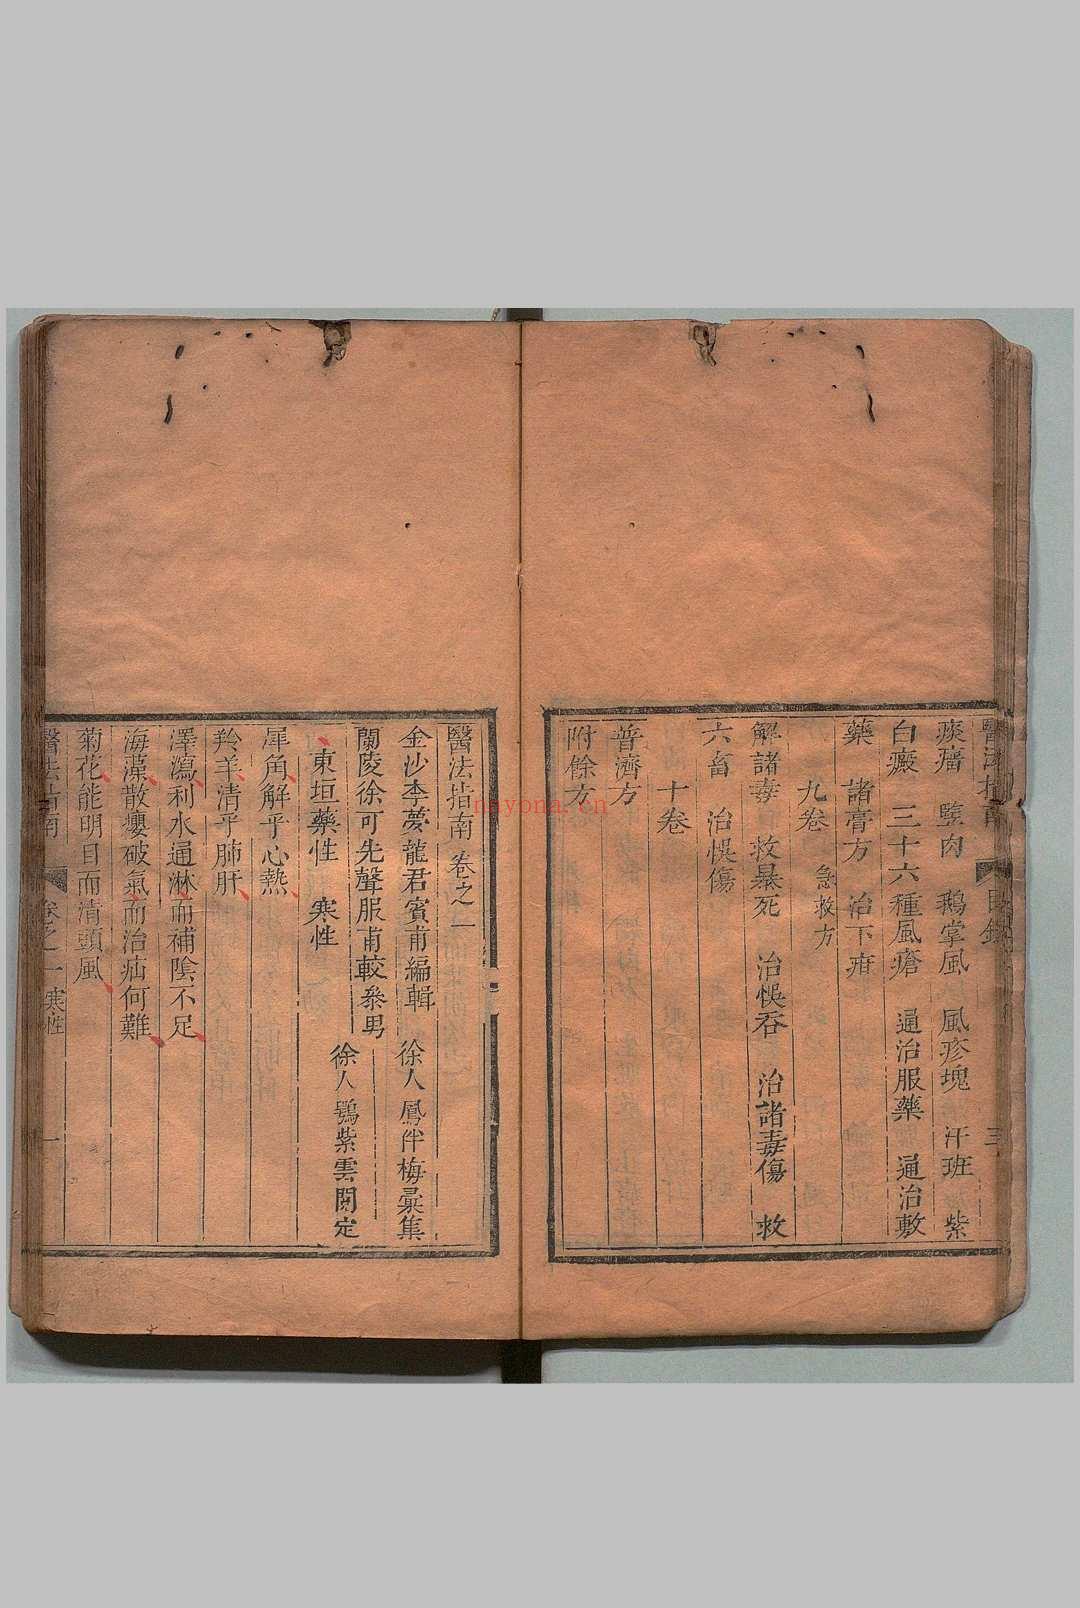 醫法指南 目錄 三
痰瘤 瞖肉 鵝掌風 風疹塊 汗班 紫
白癜 三十六種風瘡 通治服藥 通治敷
藥 諸膏方 治下疳
九卷 急救方
解諸毒 救暴死 治悞吞 治諸毒傷 救
六畜 治悞傷
十卷
普濟方
附餘方
醫法指南 卷之一
金沙李夢龍君賓甫編輯 徐人鳳伴梅彙集
蘭陵徐可先聲服甫較叅男 徐人鶚紫雲閱定
東垣藥性 寒性
犀角解乎心熱
羚羊清乎肺肝
澤瀉利水通淋而補陰不足
海藻散癭破氣而治疝何難
菊花能明目而清頭風
醫法指南 卷之一 寒性 一
nayona.cn